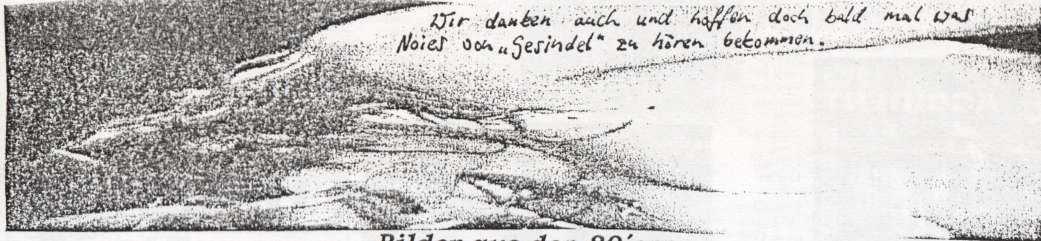 Wir danken auch und hoffen doch bald mal was
Noies von „Gesindel“ zu hören bekommen.
Bilder aus den 80'ern